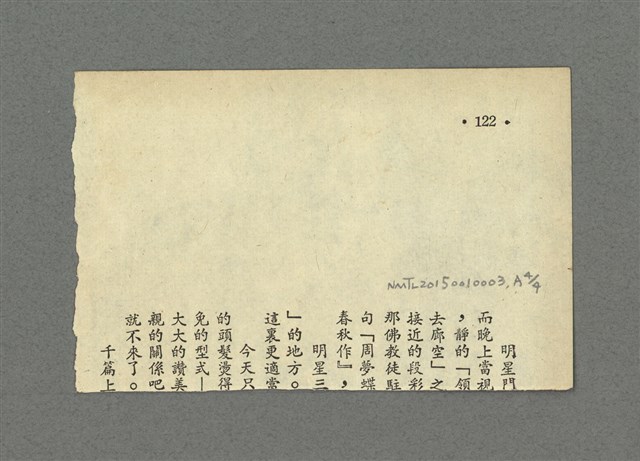 • 122 •
NMTL20150010003, A 4/4
明星門
而晚上當視
，靜的「領
去廊空」之
接近的段彩
那佛教徒駐
句「周夢蝶
春秋作』，
明星三
」的地方。
這裏更適當
今天只
的頭髮燙得
免的型式—
大大的讚美
親的關係吧
就不來了。
千篇上